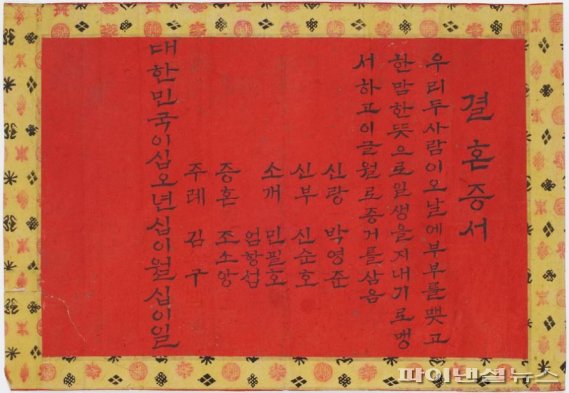 결혼증서
우리두사람이오날에부부를맺고
한맘한뜻으로일생을지내기로맹
서하고이글월로증거를삼음
신랑 박영준
신부 신순호
소개 민필호
엄항섭
증혼 조소앙
주례 김구
대한민국이십오년십이월십이일
파이낸셜뉴스